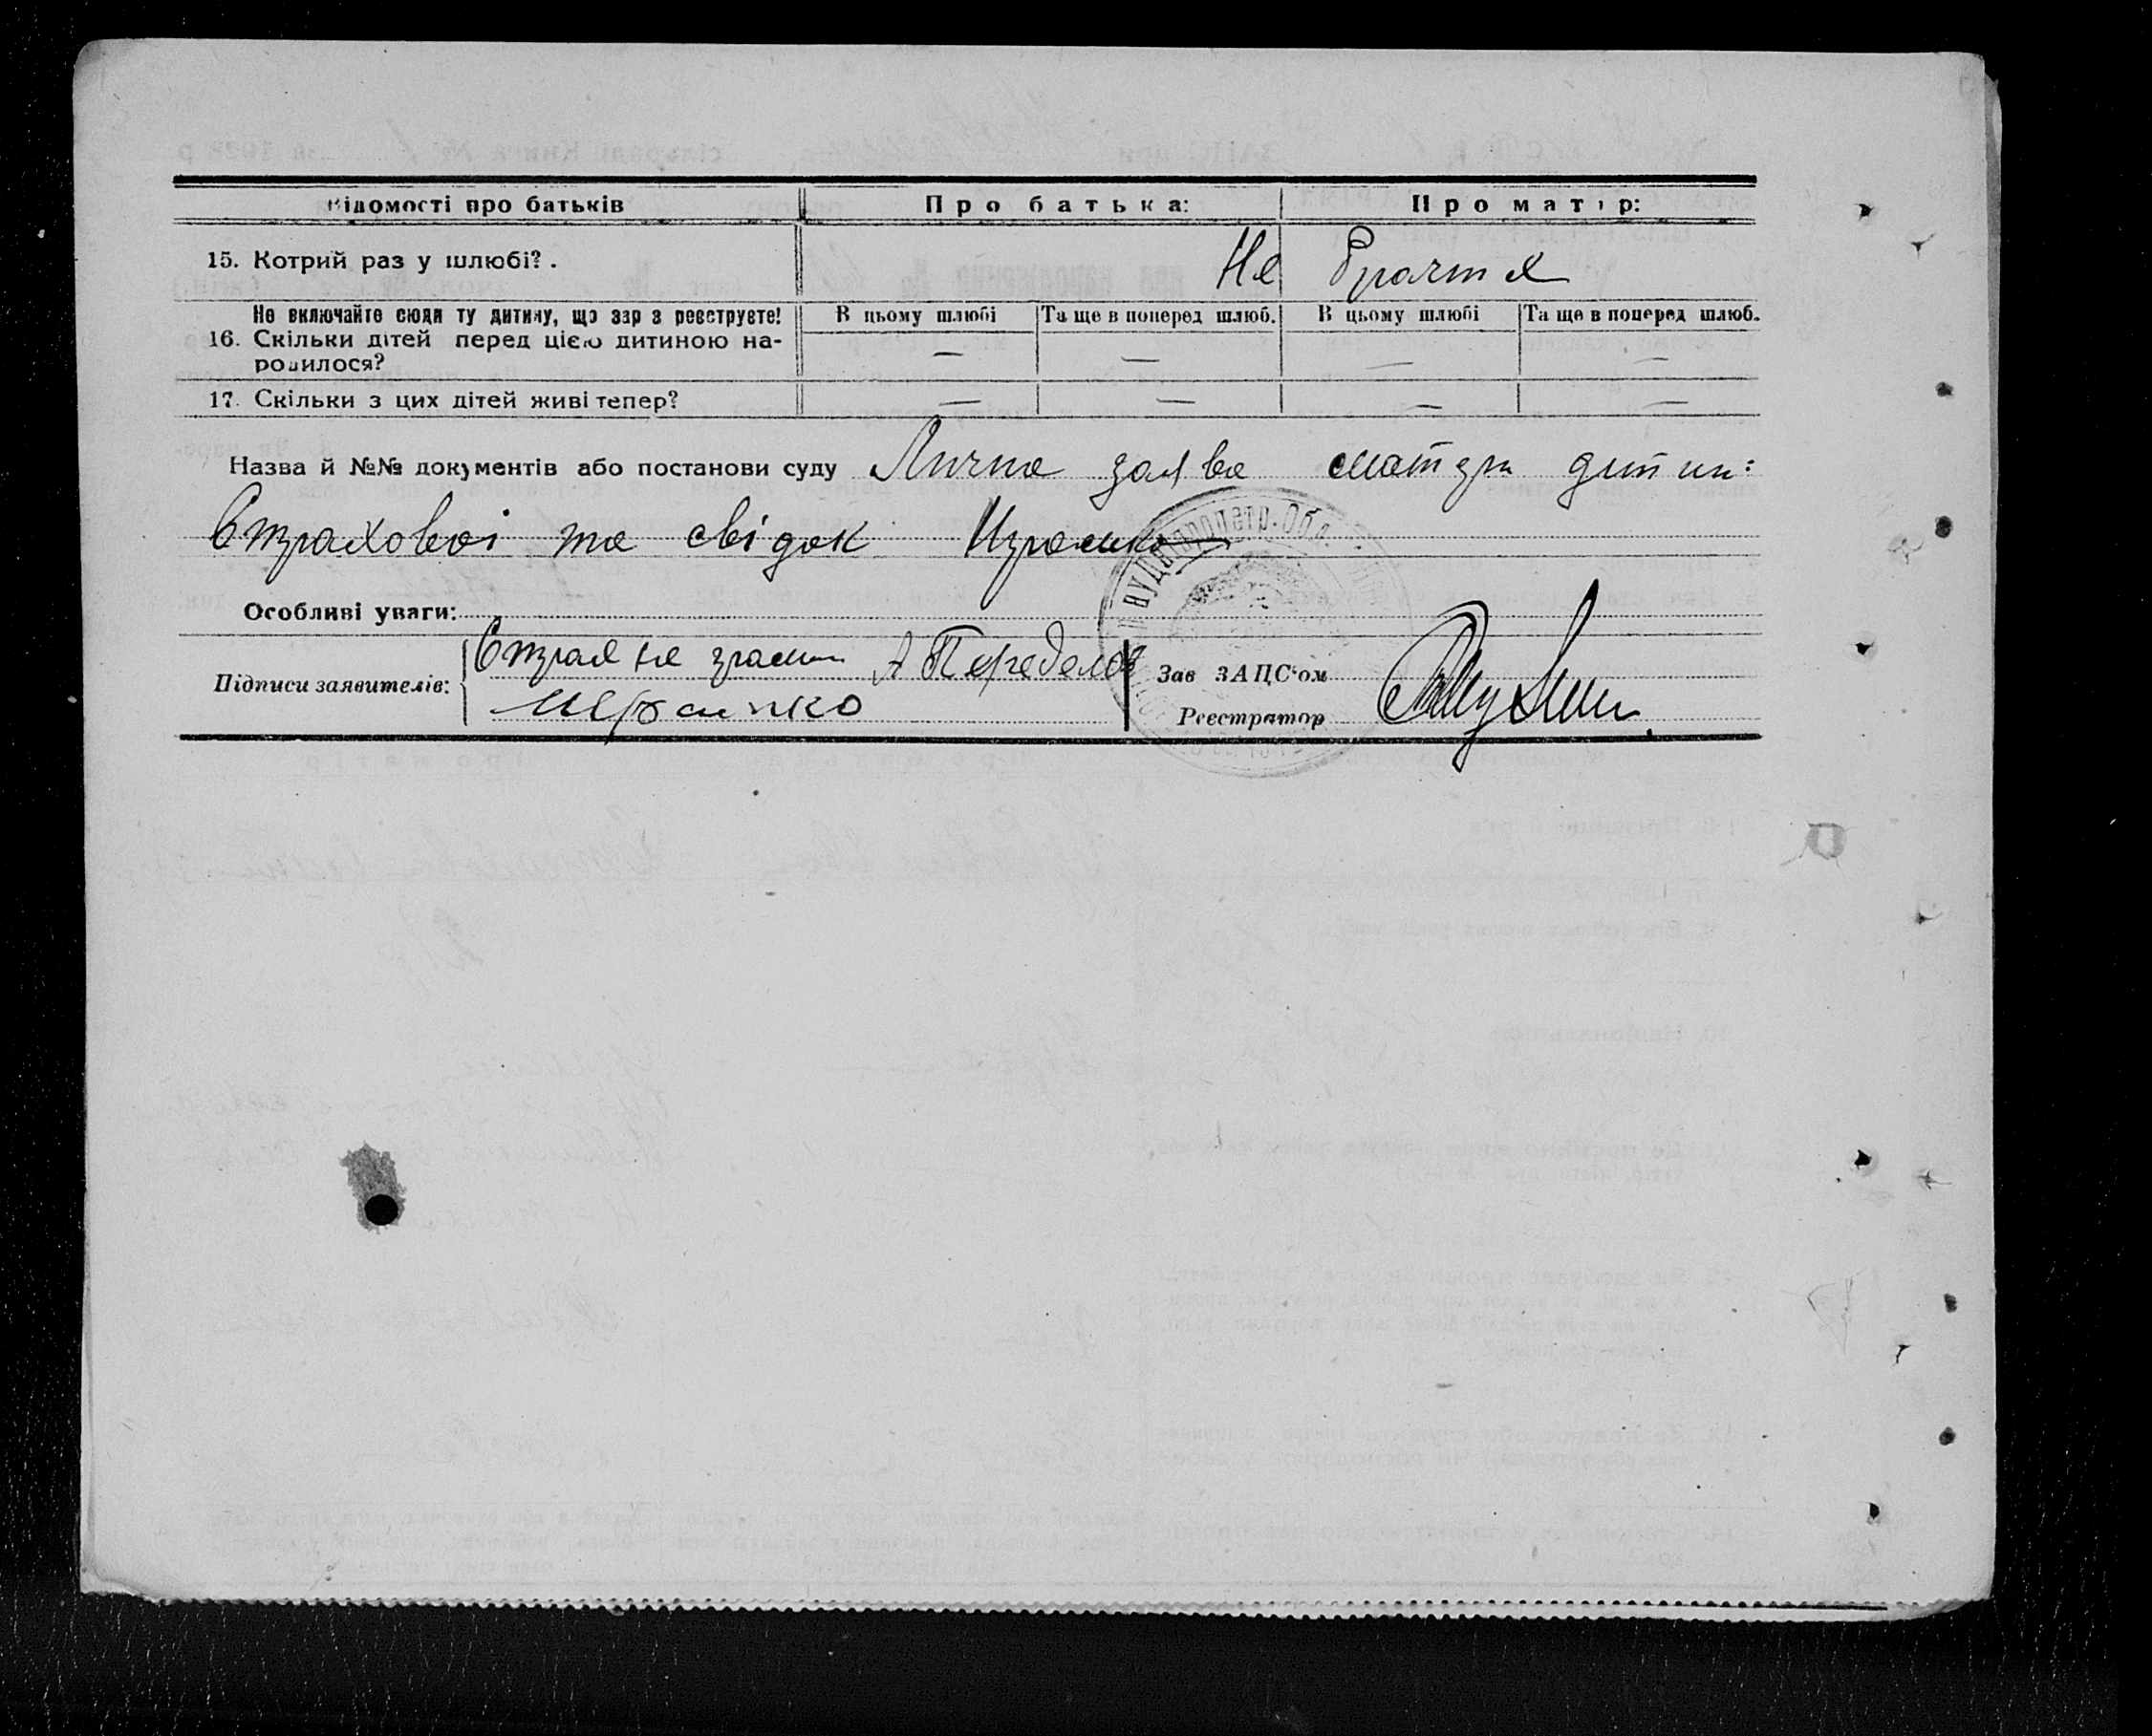 Відомості про батьків Про батька: Про матір:
15. Котрий раз у шлюбі? . Не брачтя
Не включайте сюди ту дитину, що зар з реєструєте! В цьому шлюбі Та ще в поперед шлюб. В цьому шлюбі Та ще в поперед шлюб.
16. Скільки дітей перед цією дитиною на-
родилося? — — — —
17. Скільки з цих дітей живі тепер? — — — —
Назва й №№ документів або постанови суду Лична заява матери дитин:
Страхової та свідок
Особливі уваги:
Підписи заявителів:
Зав ЗАЦС‘ом
Реєстратор